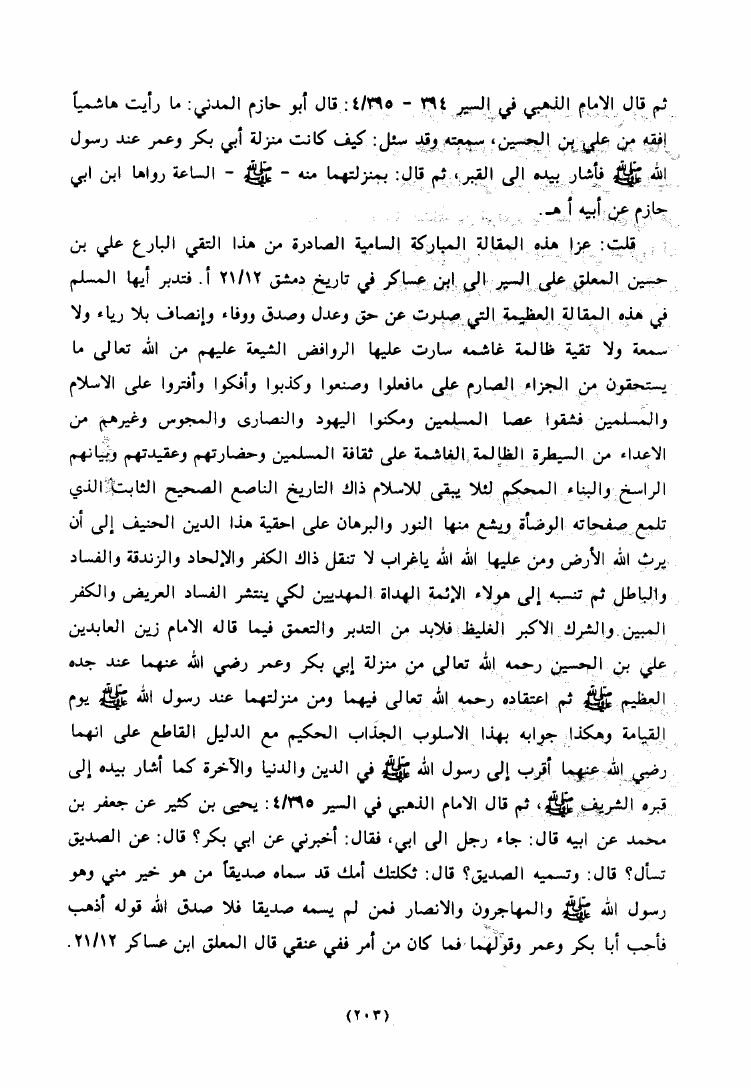 ثم قال الامام الذهبي في السير ٣٩٤ - ٤/٣٩٥: قال أبو حازم المدني: ما رأيت هاشمياً
افقه من علي بن الحسين، سمعته وقد سئل: كيف كانت منزلة أبي بكر وعمر عند رسول
الله ﷺ فأشار بيده الى القبر، ثم قال: بمنزلتهما منه - ﷺ - الساعة رواها ابن ابي
حازم عن أبيه أ هـ.
قلت: عزا هذه المقالة المباركة السامية الصادرة من هذا التقي البارع علي بن
حسين المعلق على السير الى ابن عساكر في تاريخ دمشق ٢١/١٢ أ. فتدبر أيها المسلم
في هذه المقالة العظيمة التي صدرت عن حق وعدل وصدق ووفاء وإنصاف بلا رياء ولا
سمعة ولا تقية ظالمة غاشمه سارت عليها الروافض الشيعة عليهم من الله تعالى ما
يستحقون من الجزاء الصارم على مافعلوا وصنعوا وكذبوا وأفكوا وأفتروا على الاسلام
والمسلمين فشقوا عصا المسلمين ومكنوا اليهود والنصارى والمجوس وغيرهم من
الاعداء من السيطرة الظالمة الغاشمة على ثقافة المسلمين وحضارتهم وعقيدتهم وبيانهم
الراسخ والبناء المحكم لئلا يبقى للاسلام ذاك التاريخ الناصع الصحيح الثابت الذي
تلمع صفحاته الوضأة ويشع منها النور والبرهان على احقية هذا الدين الحنيف إلى أن
يرث الله الأرض ومن عليها الله الله ياغراب لا تنقل ذاك الكفر والإلحاد والزندقة والفساد
والباطل ثم تنسبه إلى هولاء الإئمة الهداة المهديين لكي ينتشر الفساد العريض والكفر
المبين والشرك الاكبر الغليظ فلابد من التدبر والتعمق فيما قاله الامام زين العابدين
علي بن الحسين رحمه الله تعالى من منزلة إبي بكر وعمر رضي الله عنهما عند جده
العظيم ﷺ ثم اعتقاده رحمه الله تعالى فيهما ومن منزلتهما عند رسول الله ﷺ يوم
القيامة وهكذا جوابه بهذا الاسلوب الجذاب الحكيم مع الدليل القاطع على انهما
رضي الله عنهما أقرب إلى رسول الله ﷺ في الدين والدنيا والآخرة كما أشار بيده إلى
قبره الشريف ﷺ، ثم قال الامام الذهبي في السير ٤/٣٩٥: يحيى بن كثير عن جعفر بن
محمد عن ابيه قال: جاء رجل الى ابي، فقال: أخبرني عن ابي بكر؟ قال: عن الصديق
تسأل؟ قال: وتسميه الصديق؟ قال: ثكلتك أمك قد سماه صديقاً من هو خير مني وهو
رسول الله ﷺ والمهاجرون والانصار فمن لم يسمه صديقا فلا صدق الله قوله أذهب
فأحب أبا بكر وعمر وقولهما فما كان من أمر ففي عنقي قال المعلق ابن عساكر ٢١/١٢.
(٢٠٣)